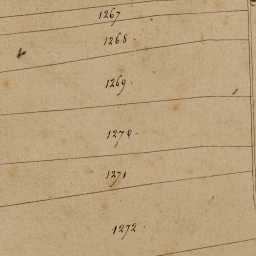 1267
1268.
1269.
1270.
1271
1272.